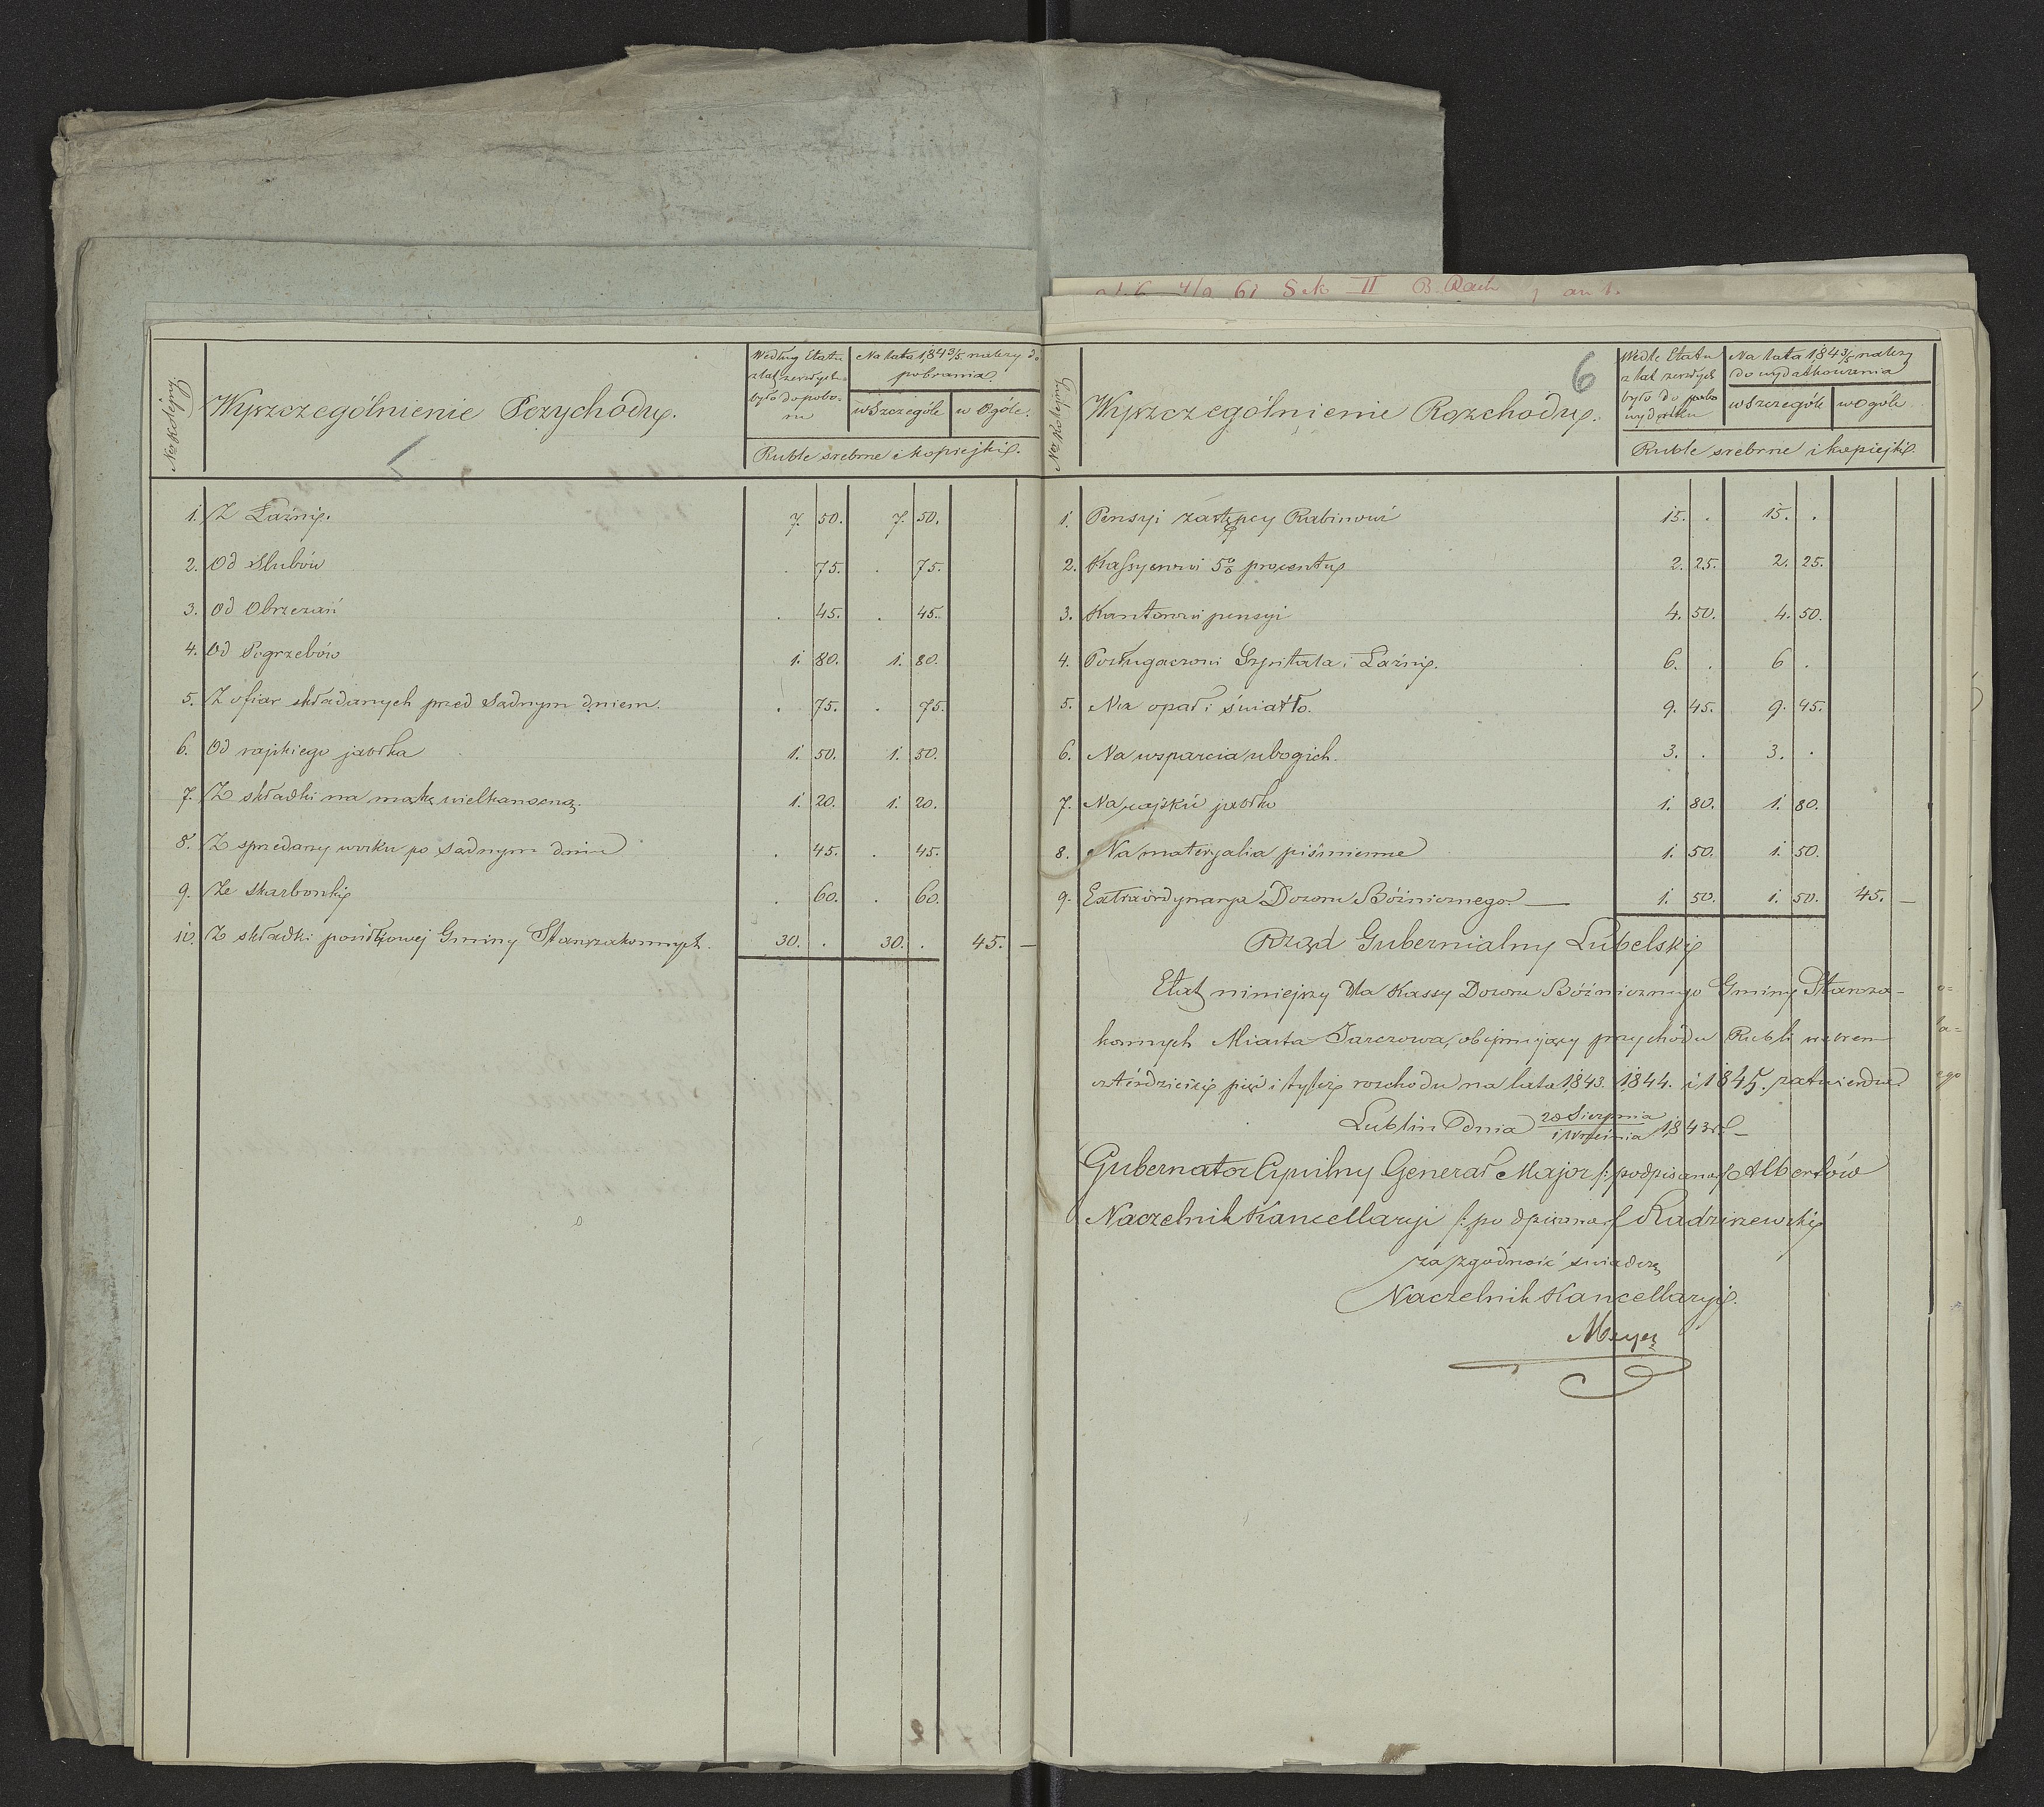 Ner Kolejny.
Wyszczególnienie Przychodu.
Według Etatu
z lat zeszłych
było do pobo-
ru
Na lata 184 3/5 należy do
pobrania.
w Szczególe
w Ogóle.
Ruble srebrne i kopiejki.
1. Z Łaźni. 7. 50. 7. 50.
2. Od Slubów . 75. . 75.
3. Od Obrzezań . 45. . 45.
4. Od Pogrzebów 1. 80. 1. 80.
5. Z ofiar składanych przed Sadnym dniem. . 75. . 75.
6. Od rajskiego jabłka 1. 50. 1. 50.
7. Z składki na mąkę wielkanocną. 1. 20. 1. 20.
8. Z sprzedaży wosku po Sadnym dniu . 45. . 45.
9. Ze skarbonki . 60. . 60.
10. Z składki posiłkowej Gminy Starozakonnych. 30. . 30. . 45. –
6
Ner Kolejny
Wyszczególnienie Rozchodu.
Wedle Etatu
z lat zeszłych
było do
wydatku
Na lata 184 3/5 należy
do wydatkowania
w Szczególe
w Ogóle
Ruble srebrne i kopiejki.
1. Pensyi zastępcy Rabinowi 15. . 15. .
2. Kassyerowi 5% procentu 2. 25. 2. 25.
3. Kantorowi pensyi 4. 50. 4. 50.
4. Posługaczowi Szpitala i Łaźni. 6. . 6 .
5. Na opał i światło. 9. 45. 9. 45.
6. Na wsparcia ubogich. 3. . 3. .
7. Na rajskie jabłko 1. 80. 1. 80.
8. Na materyalia piśmienne 1. 50. 1. 50.
9. Extraordynarya Dozoru Bóżnicznego. — 1. 50. 1. 50. 45. –
Rząd Gubernialny Lubelski
Etat niniejszy dla Kassy Dozoru Bóżnicznego Gminy Staroza-
konnych Miasta Tarczowa, obejmujący przychodu Rubli srebrem
czterdzieści pięć i tyleż rozchodu na lata 1843. 1844. i 1845. zatwierdza.
Lublin dnia 20 Sierpnia / 1 Września 1843 r. –
Gubernator Cywilny Generał Major /: podpisano :/ Albertów
Naczelnik Kancellaryi /: podpisano :/ Radziszewski
za zgodność świadczę
Naczelnik Kancellaryi.
Meyer